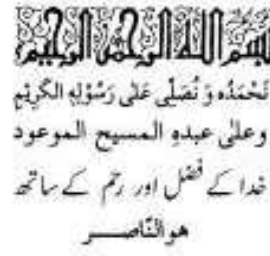 بسم اللہ الرحمن الرحیم
نَحْمَدُہٗ وَ نُصَلِّی عَلٰی رَسُوْلِہِ الْکَرِیْمِ
وعلیٰ عبدہِ المسیح الموعود
خدا کے فضل اور رحم کے ساتھ
ھو النّاصــر